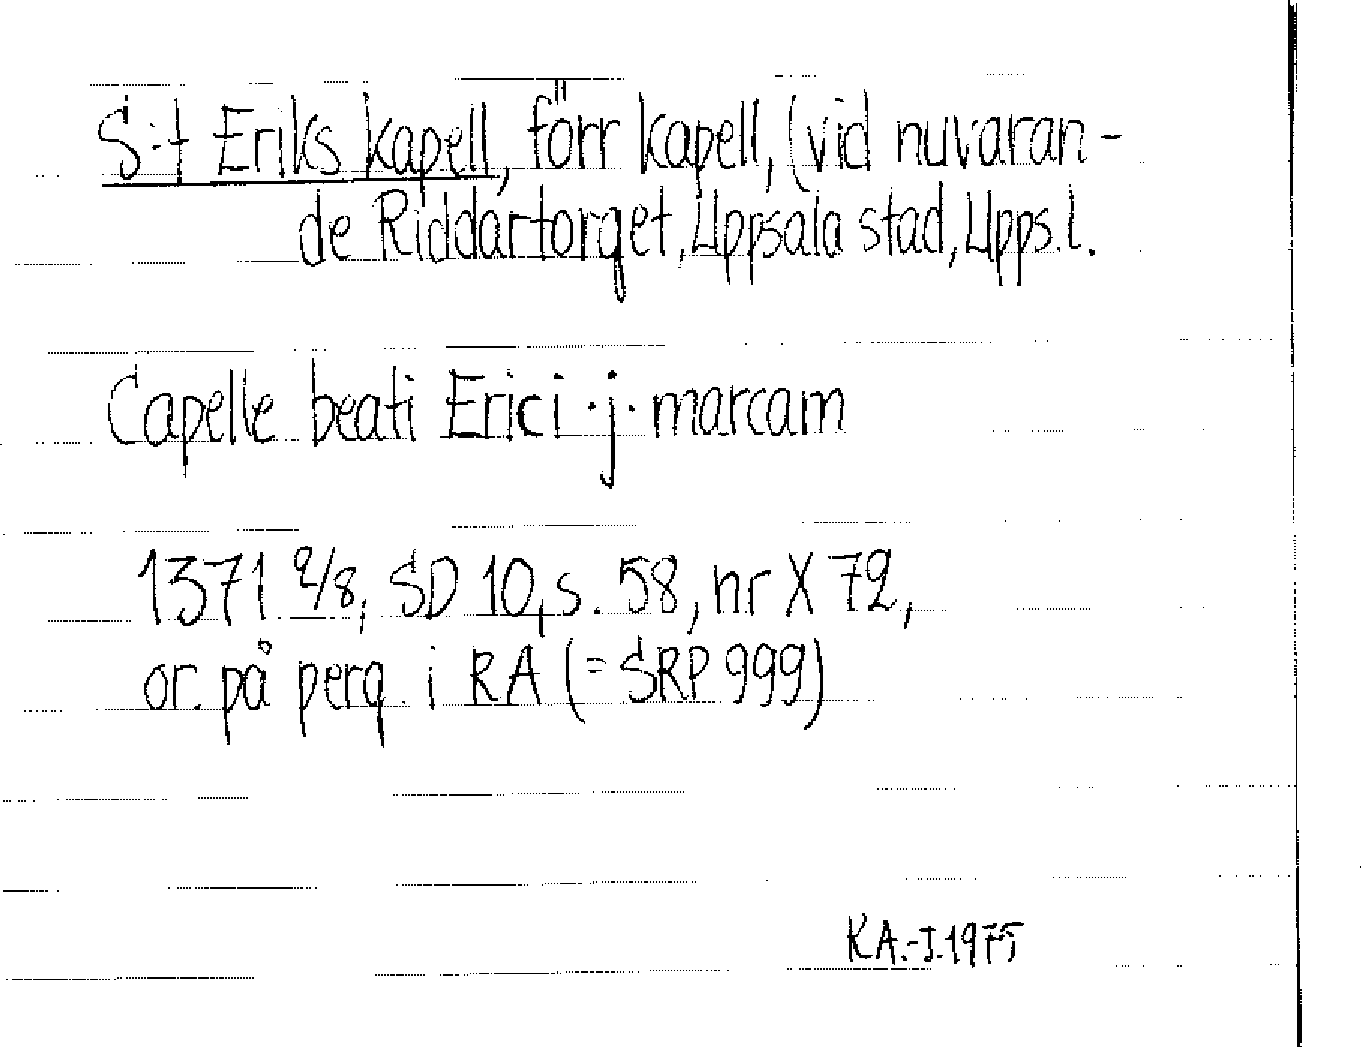 S:t Eriks kapell, förr kapell, (vid nuvaran-
de Riddartorget, Uppsala stad, Upps.l.
Capelle beati Erici ·j· marcam
1371 2/8, SD 10, s. 58, nr X 72,
or. på perg. i RA (=SRP 999)
KA.-I.1975